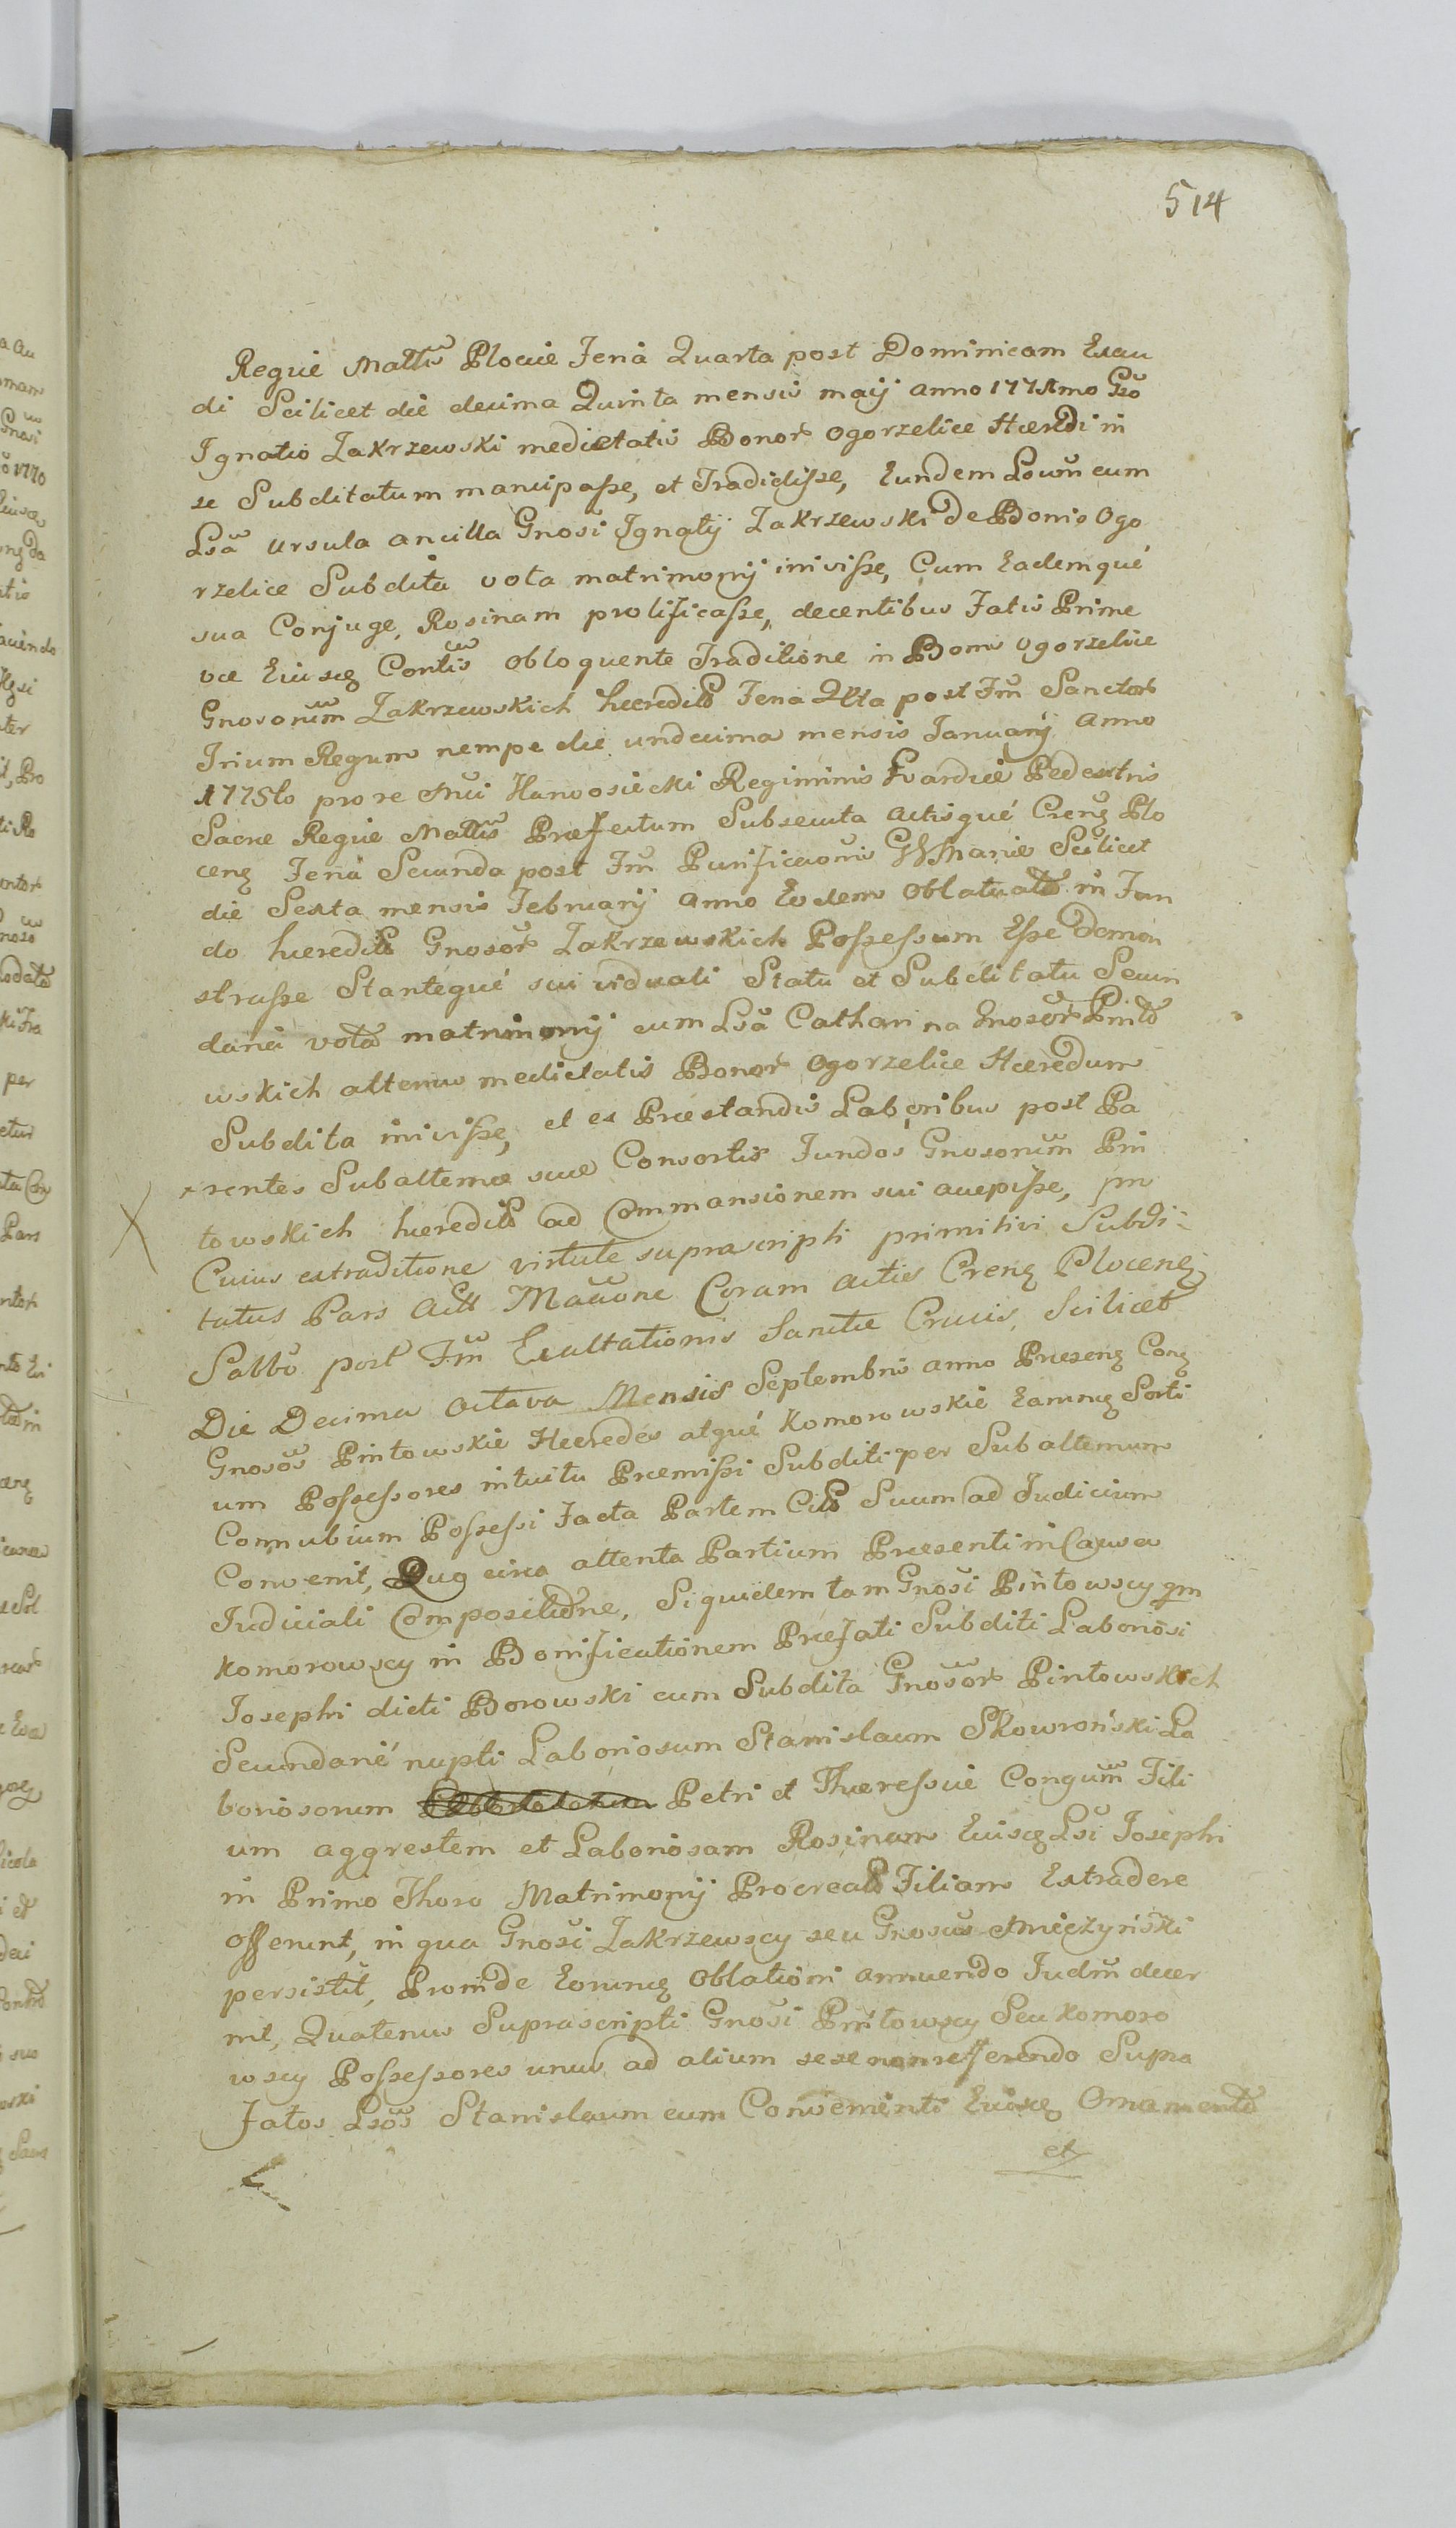 514
Regiæ Mattis Plociæ Feria Quarta post Dominicam Exau
di Scilicet die decima Quinta mensis maij anno 177 mo Gso
Ignatio Zakrzewski medietatis Bonor Ogorzelice Hæredi in
se Subditatum mancipasse, et Tradidisse, Eundem cum
Lsa Ursula ancilla Gnosi Ignatij Zakrzewski De Bonis Ogo
rzelice Subdita vota matrimonij inivisse, Cum Eademque
sua Conjuge, Rosinam prolificasse, decentibus Fatis Prime
væ Eiusq Contis obloquente Traditione in Bonis Ogorzelice
Gnosorum Zakrzewskich hæredit Feria Qta post Fm Sanctor
Trium Regum nempe die undecima mensis Januarij anno
1775to pro re Regiminis Gvardiæ Pedestris
Sacræ Regiæ Mattis Præfectum Subsecuta actisque Crens Plo
cens Feria Secunda post Fm Purificaonis Mariæ Scilicet
die Sexta mensis Februarij anno Eodem Oblatuat in Fun
do hæredit Gnosor Zakrzewskich Possessum Esse Demon
strasse Stanteque sui viduali Statu et Subditatu Secun
daria vota matrimonij cum Lsa Catharina Gnosor Pinto
wskich alterius medietatis Bonor Ogorzelice Hæredum
Subdita inivisse, et ex Præstandis Laboribus post Pa
rentes Subalternæ suæ Consortis Fundos Gnosorum Pin
towskich hæredit ad Commansionem sui accepisse, pro
Cuius extraditione virtute suprascripti primitivi Subdi-
tatus Pars Act Maccone Coram actis Crens Plocens
Sabbo post Fm Exaltationis Sanctæ Crucis, Scilicet
Die Decima Octava Mensis Septembris anno Præsens Cong
Gnosos Pintowskie Hæredes atque Komorowskie Earumq Sorti
um Possessores intuitu Præmissi Subditi per Subalternum
Connubium Possessi Facta Partem Cit Suum ad Judicium
Convenit, Quo circa attenta Partium Præsenti in Causa
Judiciali Compositione, Siquidem tam Gnosi Pintowscy qm
Komorowscy in Bonificationem Præfati Subditi Laboriosi
Josephi dicti Borowski cum Subdita Gnosor Pintowskich
Secundarie nupti Laboriosum Stanislaum Skowroński La
boriosorum Petri et Theressiæ Congum Fili
um aggrestem et Laboriosam Rosinam Eiusq Lsi Josephi
in Primo Thoro Matrimonij Procreat Filiam Extradere
offerunt, in qua Gnosi Zakrzewscy seu Gnosus Smieżyński
persistit, Proinde Eorumq Oblationi annuendo Judm decer
nit, Quatenus Suprascripti Gnosi Pintowscy Seu Komoro
wscy Possessores unus ad alium sese non referendo Supra
fatos Lsos Stanislaum cum Convenienti Eiusq Ornamento
et